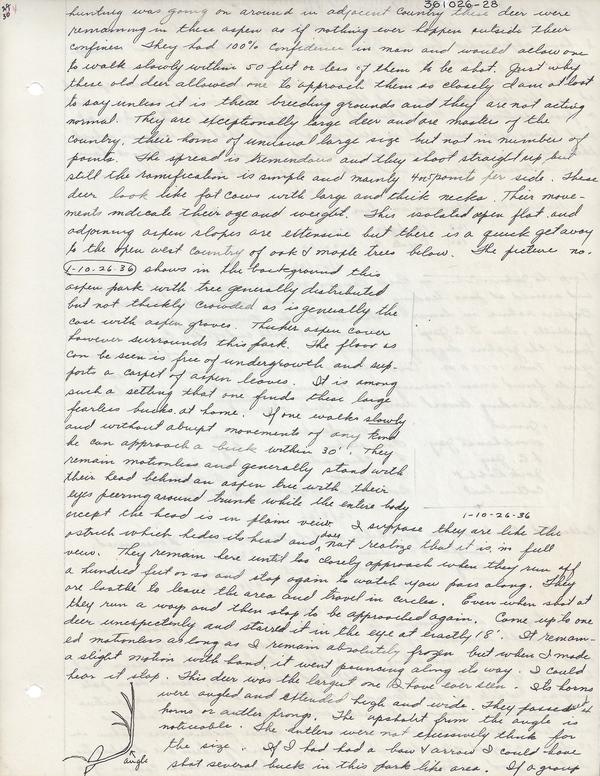 361026-28
29
30
hunting was going on around in adjacent country these deer were
remaining in these aspen as if nothing ever hoppen outside their
confines. They had 100% confidence in man and would allow one
to walk slowly within 50 feet or less of them to be shot. Just why
these old deer allowed one to approach them so closely I am at lost
to say unless it is these breeding grounds and they are not acting
normal. They are exceptionally large deer and are master of the
country, their horns of unusual large size but not in number of
points. The spread is tremendous and they shoot straight up, but
still the ramification is simple and mainly 4 or 5 points per side. These
deer look like fat cows with large and thick necks. Their move-
ments indicate their age and weight. This isolated aspen flat and
adjoining aspen slopes are extensive but there is a quick get away
to the open west country of oak & maple trees below. The picture no.
1-10-26-36 shows in the background this
aspen park with tree generally distributed
but not thickly crowded as is generally the
case with aspen groves. Thicker aspen cover
however surrounds this park. The floor as
can be seen is free of undergrowth and sup-
ports a carpet of aspen leaves. It is among
such a setting that one finds these large
fearless bucks at home. If one walks slowly
and without abrupt movements of any kind
he can approach a buck within 30'. They
remain motionless and generally stand with
their head behind an aspen tree with their
eyes peering around trunk while the entire body
except the head is in plane view. I suppose they are like the
1-10-26-36
ostrich which hides its head and does not realize that it is in full
view. They remain here until too closely approach when they run off
a hundred feet or so and stop again to watch you pass along. They
are loathe to leave the area and travel in circles. Even when shot at
they run a way and then stop to be approached again. Come up to one
deer unexpectedly and starred it in the eye at exactly 18'. It remain-
ed motionless as long as I remain absolutely frozen but when I made
a slight motion with hand, it went pouncing along its way. I could
hear it slop. This deer was the largest one I have ever seen. Its horns
were angled and extended high and wide. They possessed 4
horns or antler prongs. The upshot from the angle is
noticeable. The antlers were not excessively think for
the size. If I had had a bow & arrow I could have
shot several buck in this park like area. If a group
angle